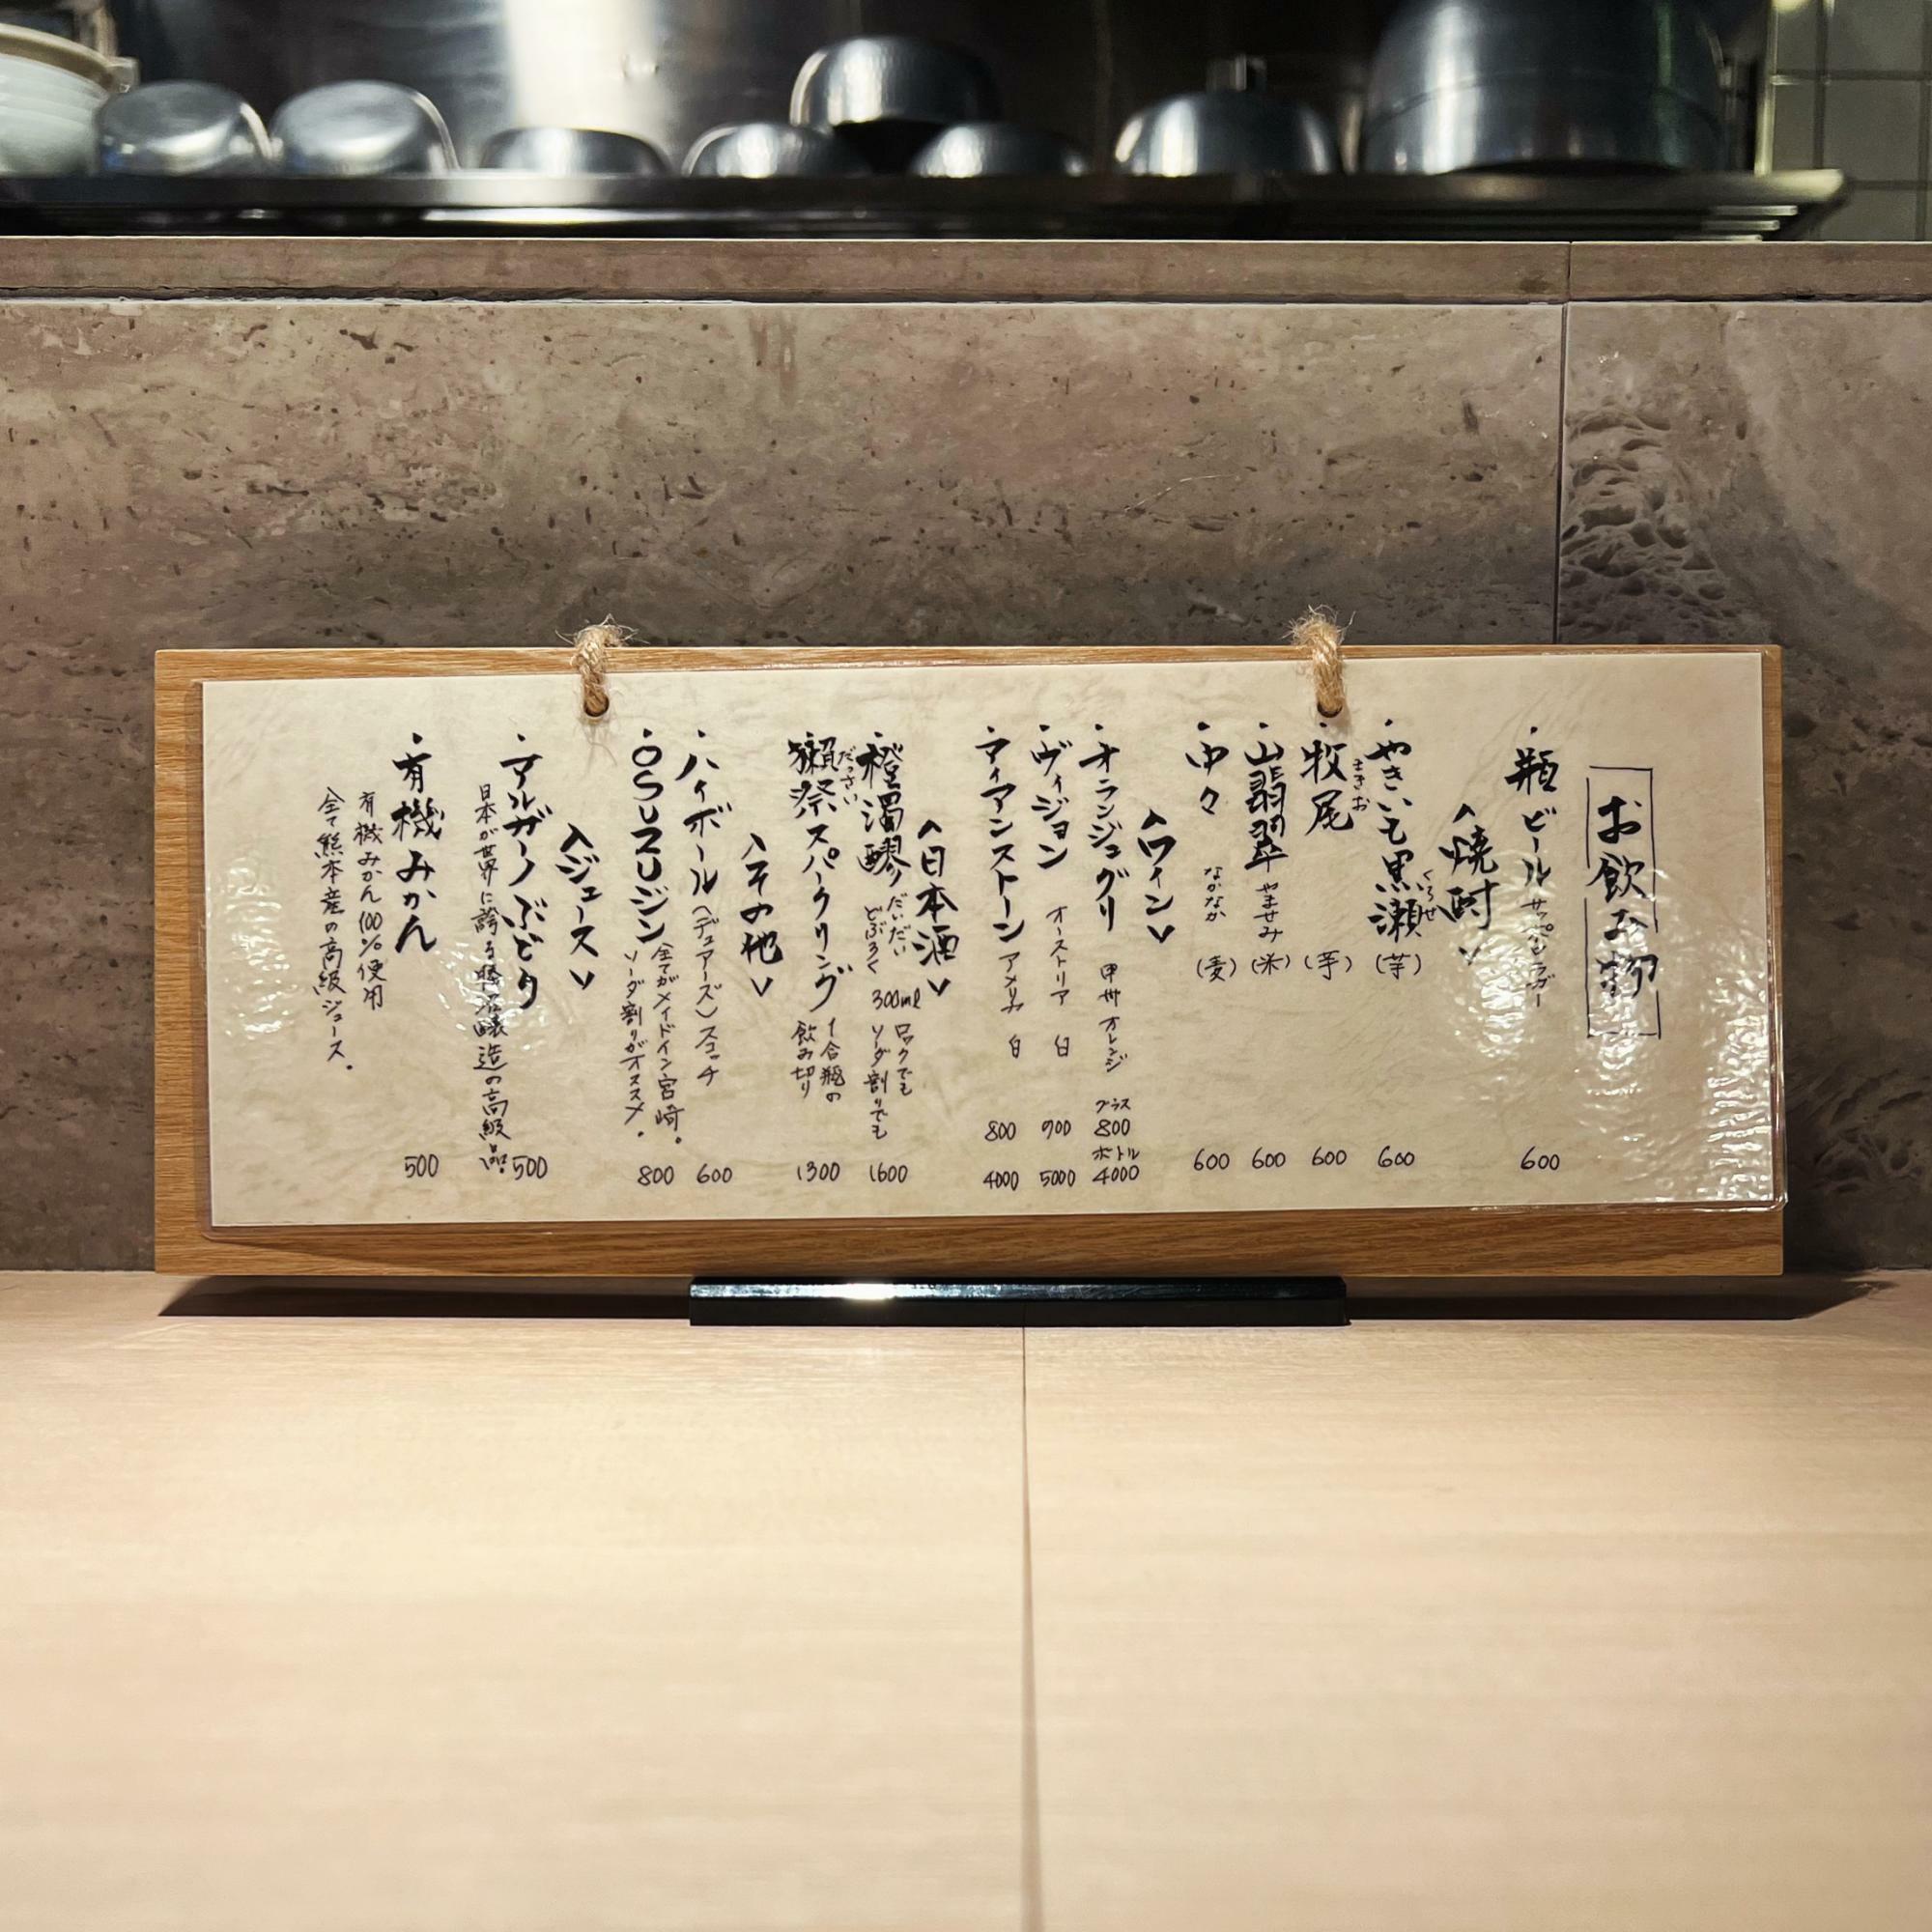 お飲み物
・瓶ビール サッポロラガー 600
＜焼酎＞
・やきいも黒瀬 くろせ (芋) 600
・牧尾 まきお (芋) 600
・山翡翠 やませみ (米) 600
・中々 なかなか (麦) 600
＜ワイン＞
・オランジュグリ 甲州 オレンジ グラス 800 ボトル 4000
・ヴィジョン オーストリア 白 900 5000
・アイアンストーン アメリカ 白 800 4000
＜日本酒＞
・橙濁醪 だいだい どぶろく 300ml ロックでも ソーダ割りでも 1600
・獺祭スパークリング だっさい 1合瓶の 飲み切り 1300
＜その他＞
・ハイボール（デュアーズ）スコッチ 600
・OSUZUジン 全てがメイドイン宮崎。 ソーダ割りがオススメ。 800
＜ジュース＞
・アルガーノぶどう 500
日本が世界に誇る勝沼醸造の高級品。
・有機みかん 500
有機みかん100%使用
全て熊本産の高級ジュース。